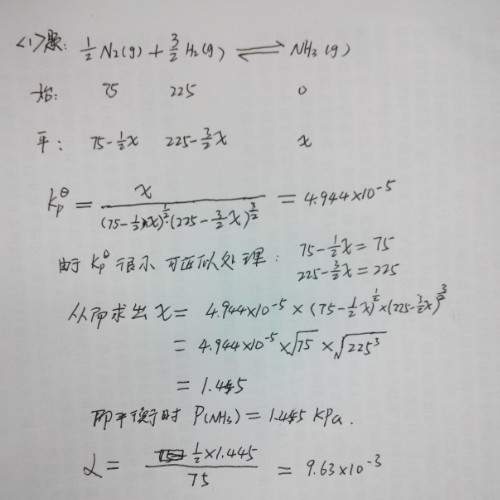 <1>题: 1/2 N₂(g) + 3/2 H₂(g) ⇌ NH₃(g)
始: 75 225 0
平: 75-1/2x 225-3/2x x
Kp^θ = x / (75-1/2x)^(1/2)·(225-3/2x)^(3/2) = 4.944×10⁻⁵
由于 Kp^θ 很小 可近似处理: 75-1/2x = 75
225-3/2x = 225
从而求出 x = 4.944×10⁻⁵ × (75-1/2x)^(1/2) × (225-3/2x)^(3/2)
= 4.944×10⁻⁵ × √75 × √225³
= 1.445
即平衡时 P(NH₃) = 1.445 kPa.
α = 1/2×1.445 / 75 = 9.63×10⁻³